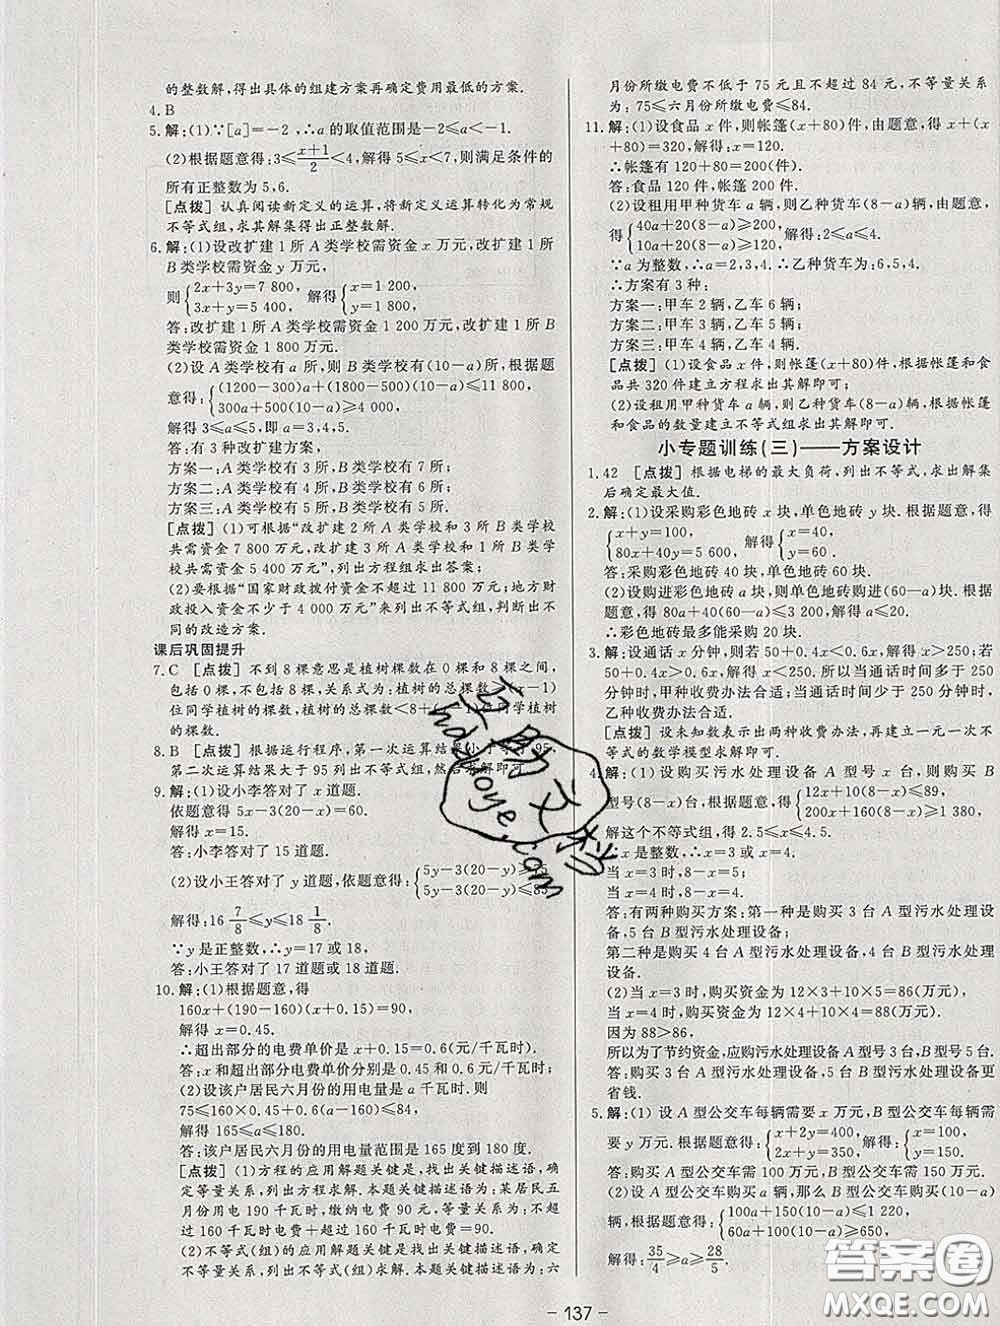 的整数解,得出具体的组建方案再确定费用最低的方案.
4.B
5.解:(1)∵[a]=-2,∴a的取值范围是-2≤a<-1.
(2)根据题意得:3≤(x+1)/2<4,解得5≤x<7,则满足条件的
所有正整数为5,6.
[点拨] 认真阅读新定义的运算,将新定义运算转化为常规
不等式组,求其解集得出正整数解.
6.解:(1)设改扩建1所A类学校需资金x万元,改扩建1所
B类学校需资金y万元,
则{2x+3y=7 800, 3x+y=5 400 解得{x=1 200, y=1 800.
答:改扩建1所A类学校需资金1 200万元,改扩建1所B
类学校需资金1 800万元.
(2)设A类学校有a所,则B类学校有(10-a)所,根据题
意得:{(1200-300)a+(1800-500)(10-a)≤11 800, 300a+500(10-a)≥4 000,
解得3≤a≤5,即a=3,4,5.
答:有3种改扩建方案:
方案一:A类学校有3所,B类学校有7所;
方案二:A类学校有4所,B类学校有6所;
方案三:A类学校有5所,B类学校有5所.
[点拨] (1)可根据“改扩建2所A类学校和3所B类学校
共需资金7 800万元,改扩建3所A类学校和1所B类学校
共需资金5 400万元”,列出方程组求出答案;
(2)要根据“国家财政拨付资金不超过11 800万元;地方财
政投入资金不少于4 000万元”来列出不等式组,判断出不
同的改造方案.
课后巩固提升
7.C [点拨] 不到8棵意思是植树棵数在0棵和8棵之间,
包括0棵,不包括8棵,关系式为:植树的总棵数≥(x-1)
位同学植树的棵数,植树的总棵数<8+(x-1)位同学植树
的棵数.
8.B [点拨] 根据运行程序,第一次运算结果小于等于95,
第二次运算结果大于95列出不等式组,然后求解即可.
9.解:(1)设小李答对了x道题.
依题意得5x-3(20-x)=60.
解得x=15.
答:小李答对了15道题.
(2)设小王答对了y道题,依题意得:{5y-3(20-y)≥75 5y-3(20-y)≤85
解得:16 7/8≤y≤18 1/8.
∵y是正整数,∴y=17或18,
答:小王答对了17道题或18道题.
10.解:(1)根据题意,得
160x+(190-160)(x+0.15)=90,
解得x=0.45.
∴超出部分的电费单价是x+0.15=0.6(元/千瓦时).
答:x和超出部分电费单价分别是0.45和0.6元/千瓦时.
(2)设该户居民六月份的用电量是a千瓦时.则
75≤160×0.45+0.6(a-160)≤84,
解得165≤a≤180.
答:该户居民六月份的用电量范围是165度到180度.
[点拨] (1)方程的应用解题关键是,找出关键描述语,确
定等量关系,列出方程求解.本题关键描述语为:某居民五
月份用电190千瓦时,缴纳电费90元.可得到等量关系为:
不超过160千瓦时电费+超过160千瓦时电费=90.
(2)不等式(组)的应用解题关键是找出关键描述语,确定
不等量关系,列出不等式(组)求解.本题关键描述语为:六
月份所缴电费不低于75元且不超过84元,不等量关系
为:75≤六月份所缴电费≤84.
11.解:(1)设食品x件,则帐篷(x+80)件,由题意,得x+(x
+80)=320,解得:x=120.
∴帐篷有120+80=200(件).
答:食品120件,帐篷200件.
(2)设租用甲种货车a辆,则乙种货车(8-a)辆,由题意,
得{40a+20(8-a)≥200, 10a+20(8-a)≥120, 解得:2≤a≤4.
∵a为整数,∴a=2,3,4.∴乙种货车为:6,5,4.
∴方案有3种:
方案一:甲车2辆,乙车6辆;
方案二:甲车3辆,乙车5辆;
方案三:甲车4辆,乙车4辆.
[点拨] (1)设食品x件,则帐篷(x+80)件,根据帐篷和食
品共320件建立方程求出其解即可;
(2)设租用甲种货车a辆,则乙种货车(8-a)辆,根据帐篷
和食品的数量建立不等式组求出其解即可.
小专题训练(三)——方案设计
1.42 [点拨] 根据电梯的最大负荷,列出不等式,求出解集
后确定最大值.
2.解:(1)设采购彩色地砖x块,单色地砖y块.根据题意,得
{x+y=100, 80x+40y=5 600, 解得{x=40, y=60.
答:采购彩色地砖40块,单色地砖60块.
(2)设购进彩色地砖a块,则单色地砖购进(2a-20)块,根
据题意,得80a+40(2a-20)≤2400,解得a≤20.
∴彩色地砖最多能采购20块.
3.解:设通话x分钟,则若50+0.4x<0.6x,解得x>250.若
50+0.4x>0.6x,解得x<250.所以当通话时间多于250
分钟时,甲种收费办法合适;当通话时间少于250分钟时,
乙种收费办法合适.
[点拨] 设未知数表示出两种收费办法,再建立一元一次不
等式的数学模型求解即可.
4.解:(1)设购买污水处理设备A型号x台,则购买B
型号(8-x)台,根据题意,得{12x+10(8-x)≤89, 200x+160(8-x)≥1 380,
解这个不等式组,得2.5≤x≤4.5.
∵x是整数,∴x=3或x=4.
当x=3时,8-x=5;
当x=4时,8-x=4.
答:有两种购买方案:第一种是购买3台A型污水处理设
备,5台B型污水处理设备;
第二种是购买4台A型污水处理设备,4台B型污水处理
设备.
(2)当x=3时,购买资金为12×3+10×5=86(万元),
当x=4时,购买资金为12×4+10×4=88(万元).
因为88>86,
所以为了节约资金,应购污水处理设备A型号3台,B型号5台.
答:购买3台A型污水处理设备,5台B型污水处理设备更
省钱.
5.解:(1)设A型公交车每辆需要x万元,B型公交车每辆需
要y万元.由题意得:{x+2y=400, 2x+y=350, 解得:{x=100, y=150.
答:购买A型公交车需100万元,B型公交车需150万元.
(2)设A型公交车购买a辆,那么B型公交车购买(10-a)
辆,根据题意,得{100a+150(10-a)≤1 220, 60a+100(10-a)≥650,
解得:35/4≥a≥28/5.
- 137 -
答案圈
MXQE.COM